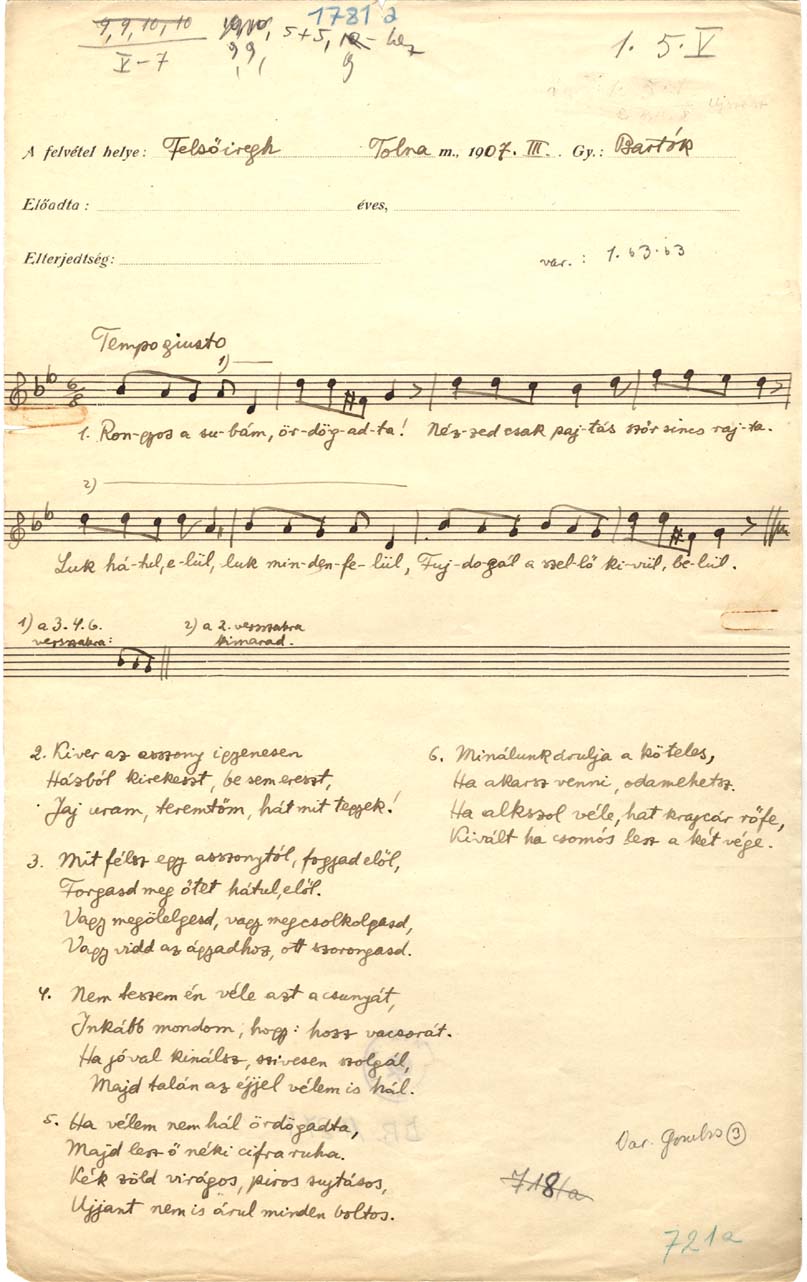 1781 a
9, 9, 10, 10
5+5,
V-7
9 9,
9
1. 5. V
A felvétel helye: Felsőiregh Tolna m., 1907. III. Gy.: Bartók
Előadta: éves,
Elterjedtség:
var.: 1. b3. b3
Tempo giusto
1)
6/8
1. Ron-gyos a su-bám, ör-dög-ad-ta! Néz-zed csak paj-tás szőr sincs raj-ta.
2)
Luk há-tul, e-lül, luk min-den-fe-lül, Fuj-do-gál a szel-lő ki-vül, be-lül.
1) a 3. 4. 6. 2) a 2. versszakra
versszakra: kimarad.
2. Kiver az asszony igyenesen
Házból kirekeszt, be sem ereszt,
Jaj uram, teremtőm, hát mit tegyek!
3. Mit félsz egy asszonytól, fogjad elől,
Forgasd meg őtet hátul, elől.
Vagy megölelgesd, vagy megcsolkolgasd,
Vagy vidd az ágyadhoz, ott szorongasd.
4. Nem teszem én véle azt a csunyát,
Inkább mondom, hogy: hossz vacsorát.
Ha jóval kinálsz, szivesen szolgál,
Majd talán az éjjel vélem is hál.
5. Ha vélem nem hál ördögadta,
Majd lesz ő néki cifra ruha.
Kék zöld virágos, piros sujtásos,
Ujjant nem is árul minden boltos.
6. Minálunk árulja a köteles,
Ha akarsz venni, odamehetsz.
Ha alkszol véle, hat krajcár rőfe,
Kivált ha csomós lesz a két vége.
3
718/a
721a